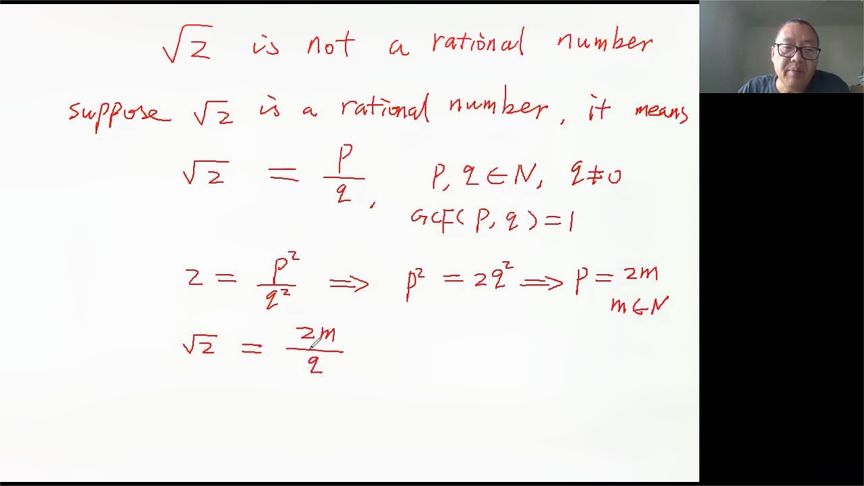 √2 is not a rational number
suppose √2 is a rational number, it means
√2 = p/q, p, q ∈ N, q ≠ 0
GCF(p, q) = 1
2 = p²/q² ⟹ p² = 2q² ⟹ p = 2m
m ∈ N
√2 = 2m/q